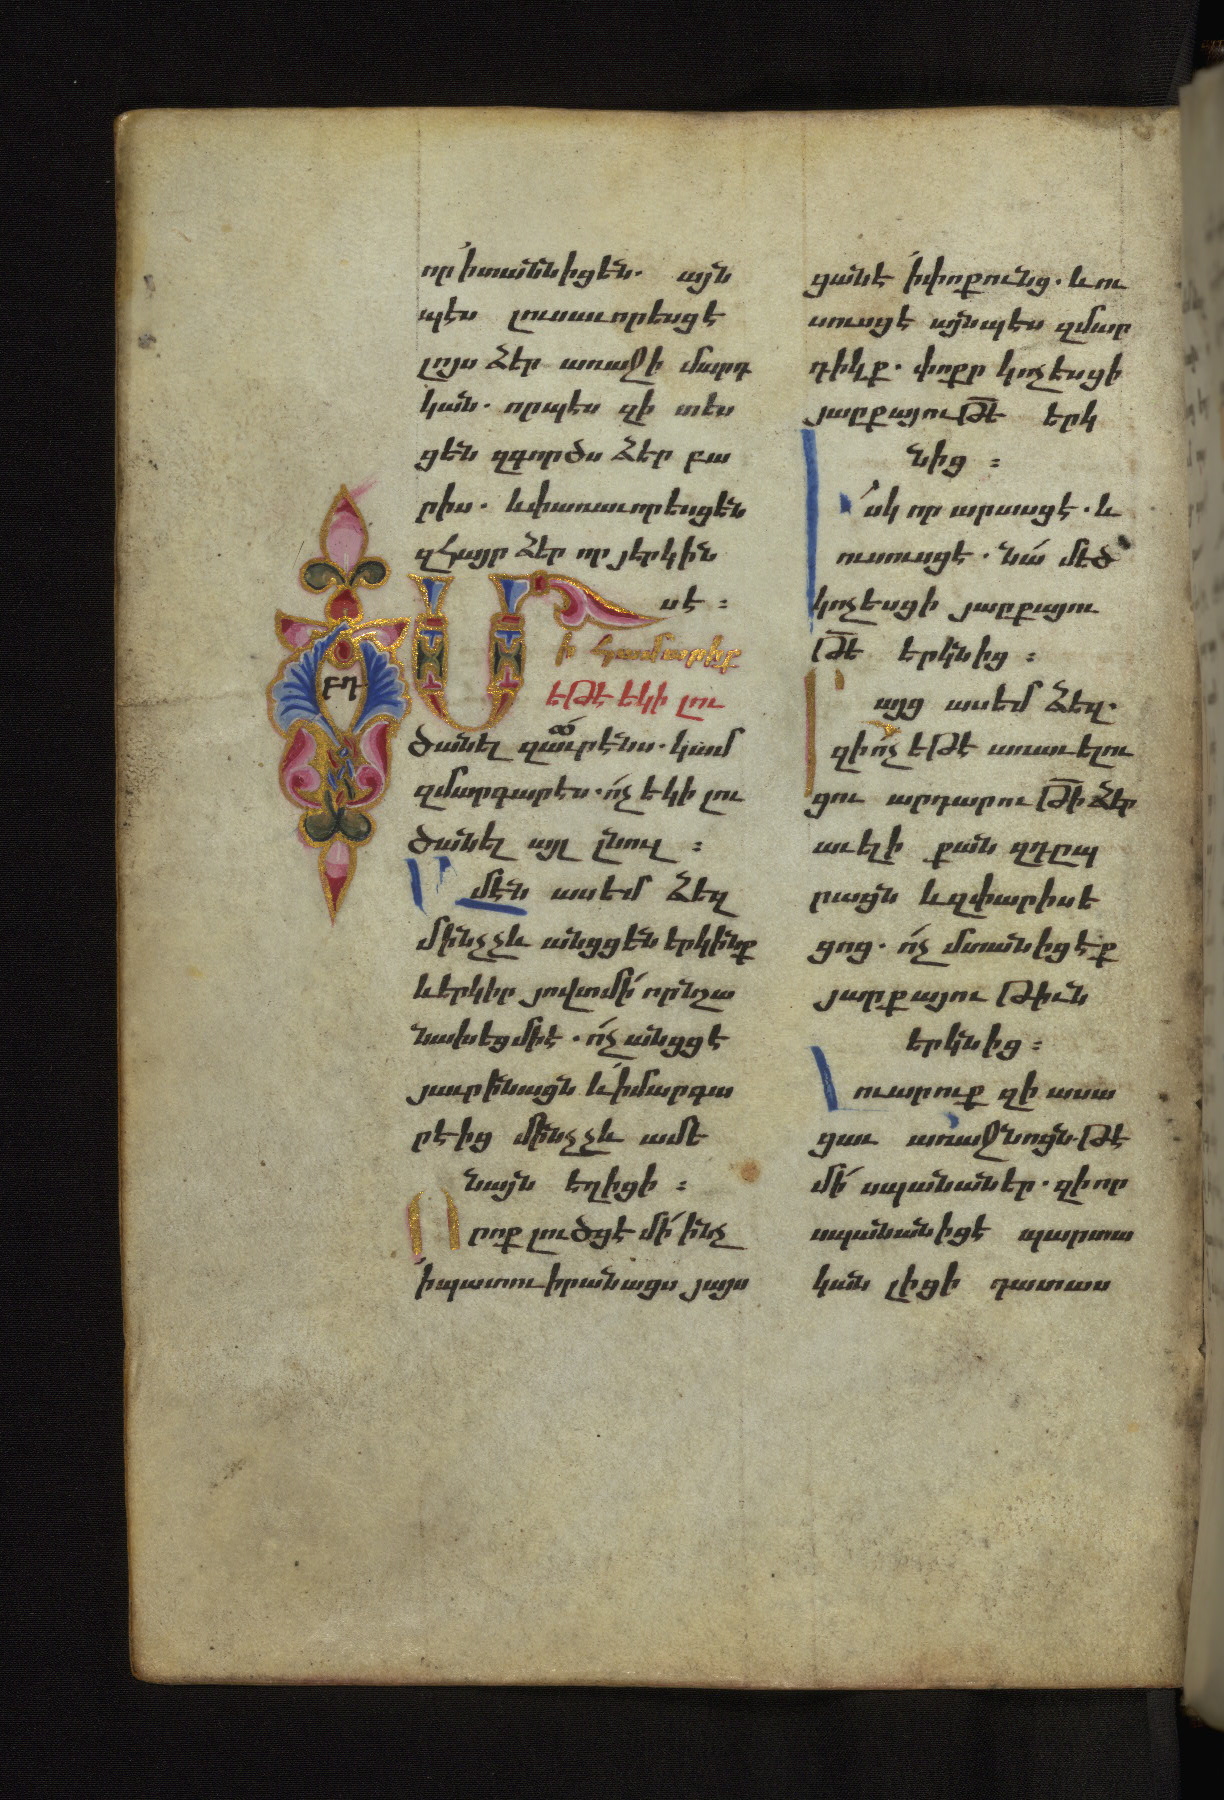 որ ՛ի տանն իցեն. այն
պէս լուսաւորեսցէ
լոյս ձեր առաջի մարդ
կան. որպէս զի տես
ցեն զգործս ձեր բա
րիս. և փառաւորեսցեն
զհայր ձեր որ յերկին
ս է :
Մի համարիք
բդ
եթէ եկի լու
ծանել զաւրէնս. կամ
զմարգարէս. ո՛չ եկի լու
ծանել այլ լնուլ :
Ամէն ասեմ ձեզ
մինչչև անցցեն երկինք
և երկիր յովտ մի որ նշա
նախեց մի է. ո՛չ անցցէ
յաւրինացն և ՛ի մարգա
րէից մինչչև ամե
նայն եղիցի :
Որ ոք լուծցէ մի ինչ
՛ի պատուիրանացս յայս
ցանէ ՛ի փոքունց. և ու
սուսցէ այնպէս զմար
դիկք. փոքր կոչեսցի
յարքայութե երկ
նից :
Իսկ որ արասցէ. և
ուսուսցե. նա մեծ
կոչեսցի յարքայու
թե երկնից :
Բայց ասեմ ձեզ.
զի ո՛չ եթէ առաւելու
ցու արդարութի ձեր
աւելի քան զդըպ
րացն և զփարիսե
ցոց. ո՛չ մտանիցէք
յարքայութիւն
երկնից :
Լուարուք զի ասա
ցաւ առաջնոցն. թէ
մի սպանաներ. զի որ
սպանանիցէ պարտա
կան լիցի դատաս